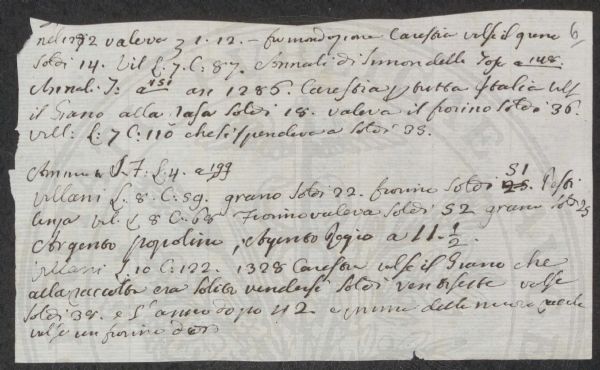 nel 1272 valeva 3 1. 12. — fu mondazione Carestia valse il grano 6
Soldi 14. Vil L: 7. C: 87. Annali di Simon della Tosa a 148.
Annali I: a 151 an 1286. Carestia p tutta Italia valse
il Grano alla rasa Soldi 18. valeva il fiorino Soldi 36.
vill: L: 7 C: 110 che si spendeva a Soldi 38.
L. 4. a 199
villani L. 8 C: 59. grano Soldi 22. fiorino Soldi 51
vil. L 8 C: 68 Fiorino valeva Soldi 52 grano Soldi 25
Argento popolino, Argento a 11. 1/2.
Villani L. 10 C: 122. 1328 Carestia valse il Grano che
alla raccolta era solito vendersi Soldi valse
Soldi 38. e l'anno dopo 42 e prima della nuova
valse un fiorino d'oro